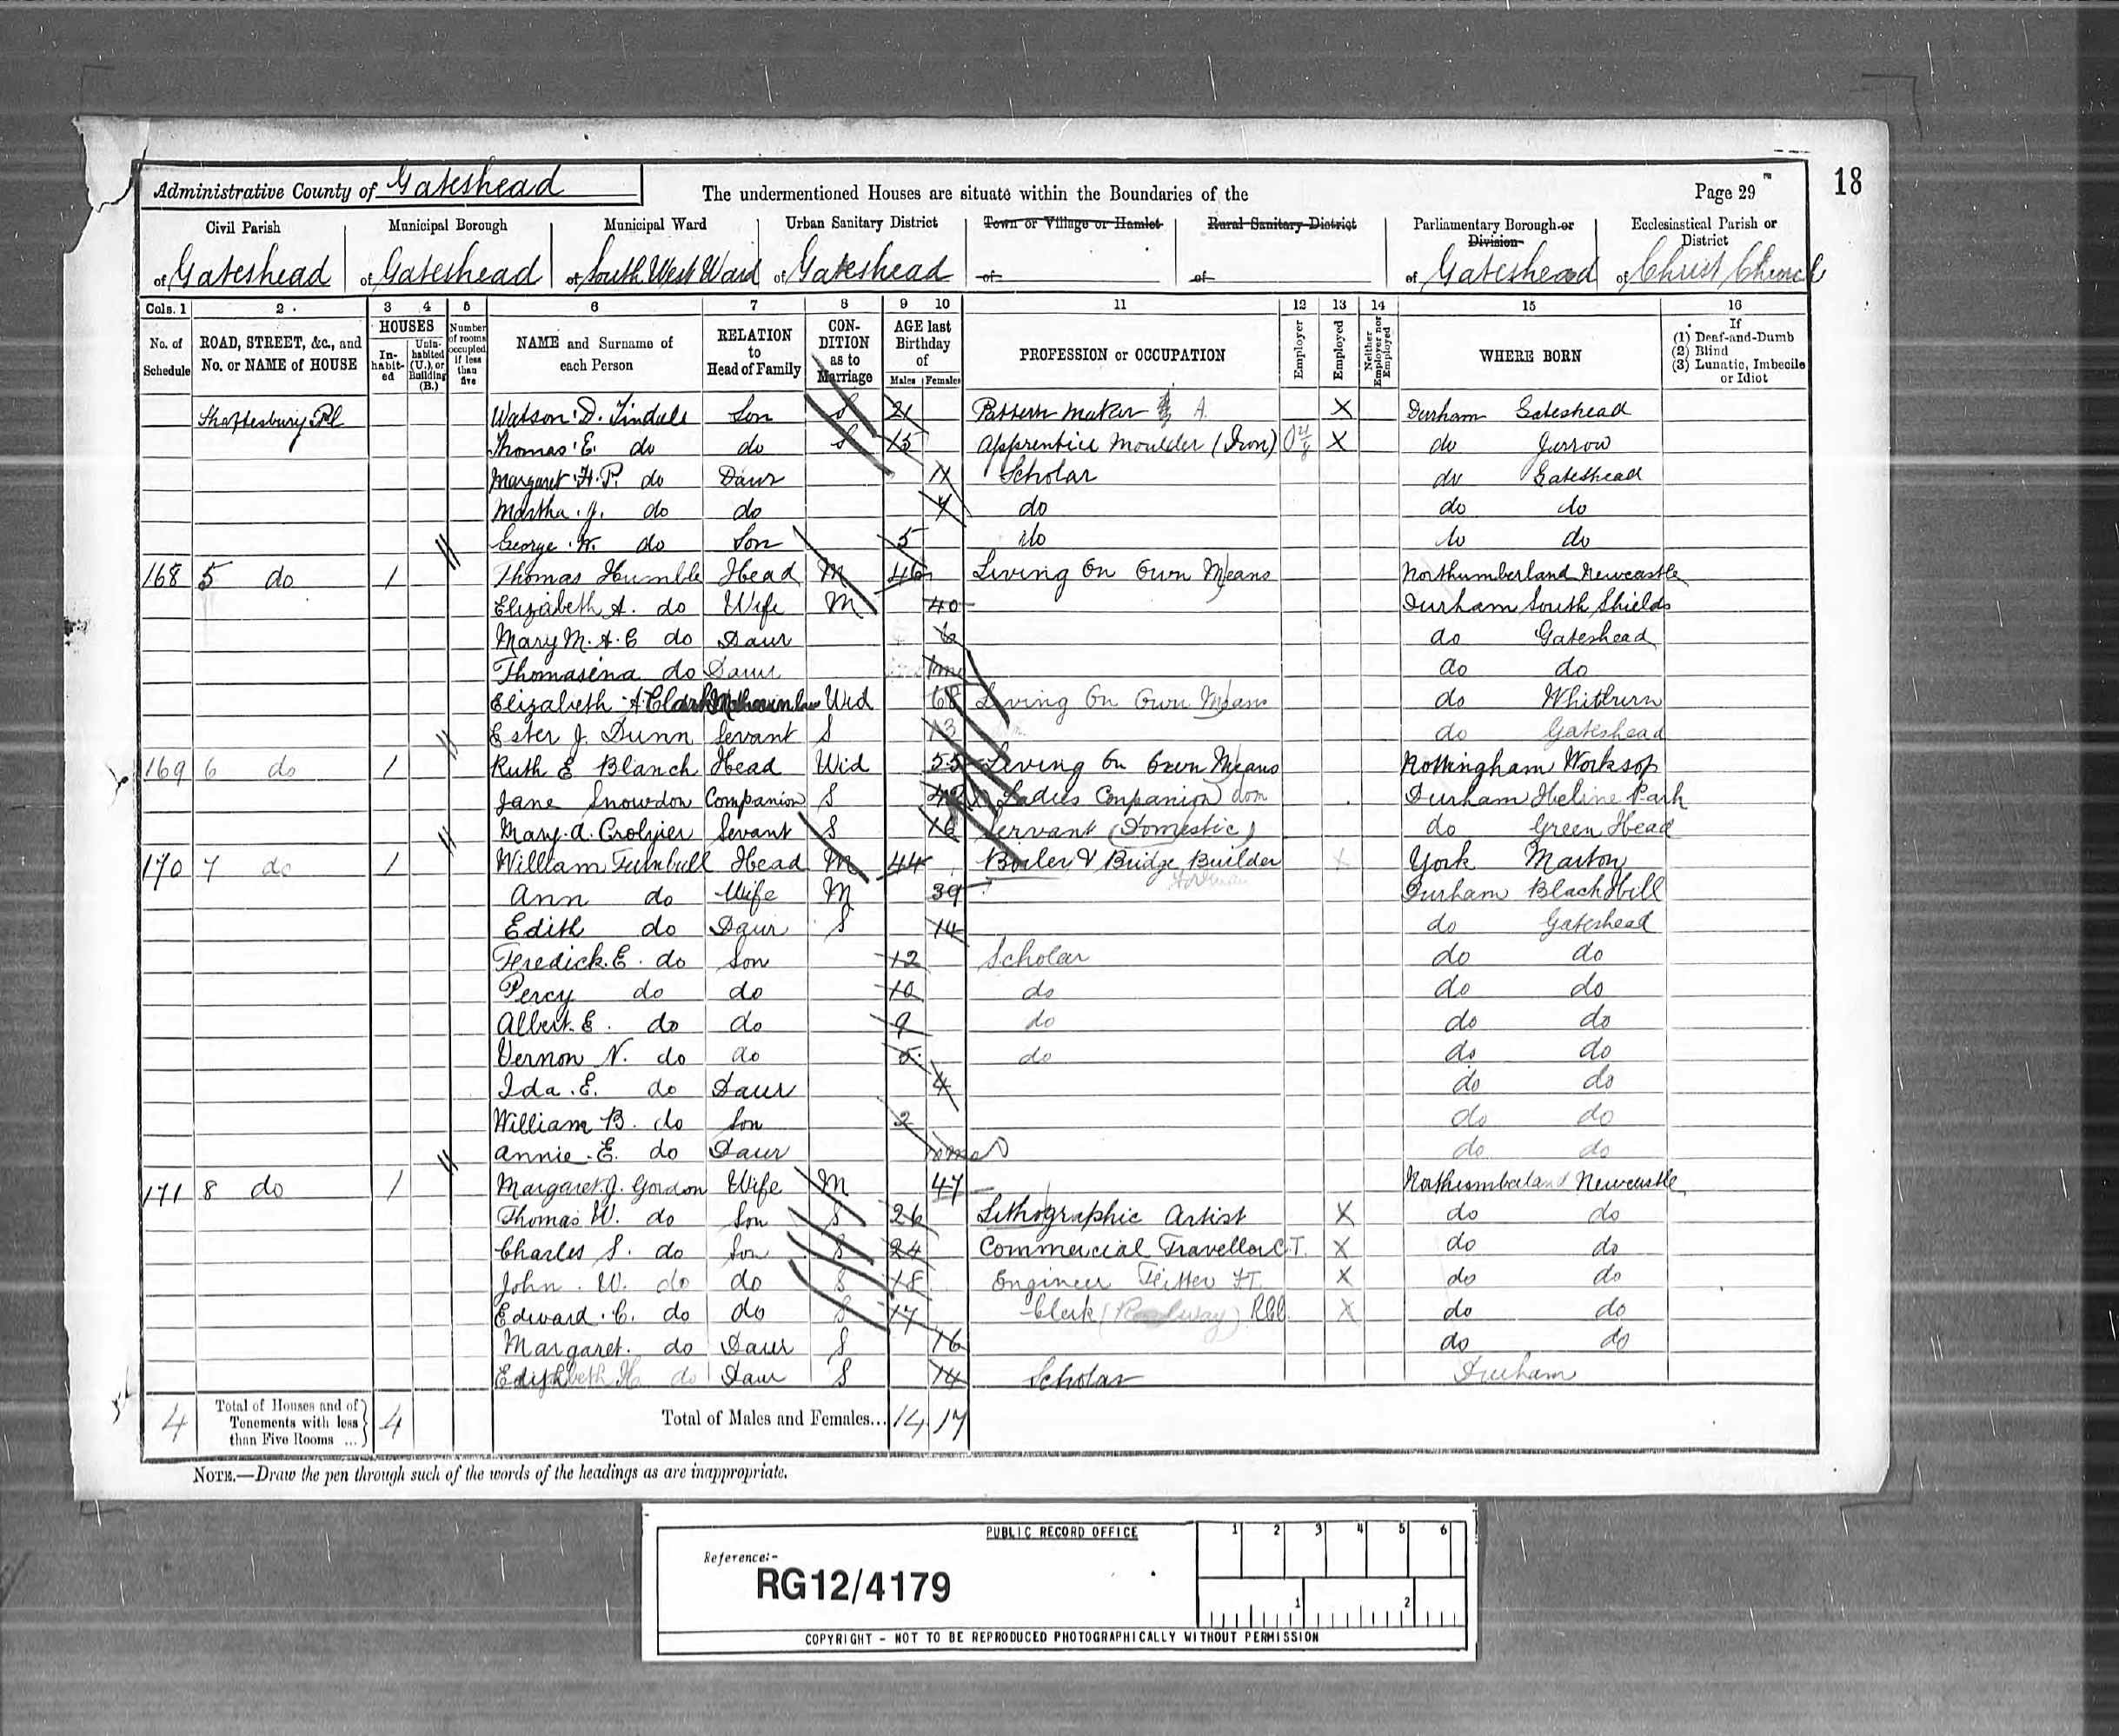 18
Administrative County of Gateshead
The undermentioned Houses are situate within the Boundaries of the
Page 29
Civil Parish Municipal Borough Municipal Ward Urban Sanitary District Town or Village or Hamlet Rural Sanitary District Parliamentary Borough or Division Ecclesiastical Parish or District
of Gateshead of Gateshead of South West Ward of Gateshead of of of Gateshead of Christ Church
Cols. 1 2 3 4 5 6 7 8 9 10 11 12 13 14 15 16
No. of Schedule ROAD, STREET, &c., and No. or NAME of HOUSE HOUSES Inhabited Uninhabited (U.), or Building (B.) Number of rooms occupied if less than five NAME and Surname of each Person RELATION to Head of Family CONDITION as to Marriage AGE last Birthday of Males Females PROFESSION or OCCUPATION Employer Employed Neither Employer nor Employed WHERE BORN If (1) Deaf-and-Dumb (2) Blind (3) Lunatic, Imbecile or Idiot
Shaftesbury Pl Watson D. Tindale Son S 21 Pattern Maker A. X Durham Gateshead
Thomas E. do do S 15 Apprentice Moulder (Iron) X do Jarrow
Margaret H. P. do Daur 11 Scholar do Gateshead
Martha J. do do 7 do do do
George W. do Son 5 do do do
168 5 do 1 Thomas Humble Head M 46 Living On Own Means Northumberland Newcastle
Elizabeth A. do Wife M 40 Durham South Shields
Mary M. A. E do Daur 6 do Gateshead
Thomasina do Daur 1m do do
Elizabeth A Clark Mother in law Wid 68 Living On Own Means do Whitburn
Ester J. Dunn Servant S 13 do Gateshead
169 6 do 1 Ruth E Blanch Head Wid 55 Living On Own Means Nottingham Worksop
Jane Snowdon Companion S Ladies Companion dom Durham Park
Mary. A. Crozier Servant S 16 Servant (Domestic) do Green Head
170 7 do 1 William Turnbull Head M 44 Boiler & Bridge Builder X York Marton
Foreman
Ann do Wife M 39 Durham Blackhill
Edith do Daur S 14 do Gateshead
Fredick. E. do Son 12 Scholar do do
Percy do do 10 do do do
Albert. E. do do 9 do do do
Vernon N. do do 5 do do do
Ida. E. do Daur 4 do do
William B. do Son 2 do do
Annie. E. do Daur do do
171 8 do 1 Margaret J. Gordon Wife M 47 Northumberland Newcastle
Thomas W. do Son S 26 Lithographic Artist X do do
Charles S. do Son S 24 Commercial Traveller C.T. X do do
John. W. do do S 18 Engineer Fitter FT. X do do
Edward. C. do do S 17 Clerk (Railway) X do do
Margaret. do Daur S 16 do do
do Daur S 14 Scholar Durham
4 Total of Houses and of Tenements with less than Five Rooms ... 4 Total of Males and Females... 14 17
NOTE.—Draw the pen through such of the words of the headings as are inappropriate.
PUBLIC RECORD OFFICE
1 2 3 4 5 6
Reference:-
RG12/4179
1 2
COPYRIGHT - NOT TO BE REPRODUCED PHOTOGRAPHICALLY WITHOUT PERMISSION